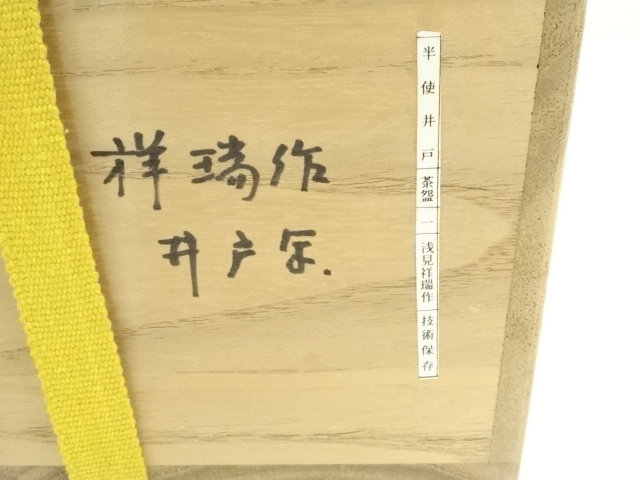 半使井戸 茶盌 一 浅見祥瑞作 技術保存
祥瑞作
井戸